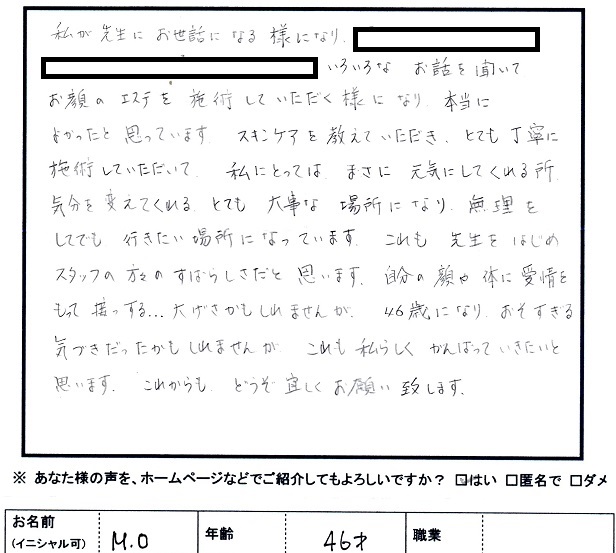 私が先生にお世話になる様になり、
いろいろな お話を聞いて
お顔の エステを 施術していただく様になり 本当に
よかったと思っています。 スキンケアを教えていただき、とても丁寧に
施術していただいて、 私にとっては、まさに 元気にしてくれる所、
気分を変えてくれる、とても 大事な 場所になり、無理を
してでも 行きたい場所になっています。 これも 先生をはじめ
スタッフの方々のすばらしさだと 思います。 自分の顔や体に愛情を
もって接っする…大げさかもしれませんが、 46歳になり、おそすぎる
気づきだったかもしれませんが、 これも私らしく がんばっていきたいと
思います。 これからも、どうぞ宜しくお願い致します。
※ あなた様の声を、ホームページなどでご紹介してもよろしいですか？ □はい □匿名で □ダメ
お名前 (イニシャル可) M.O 年齢 46才 職業